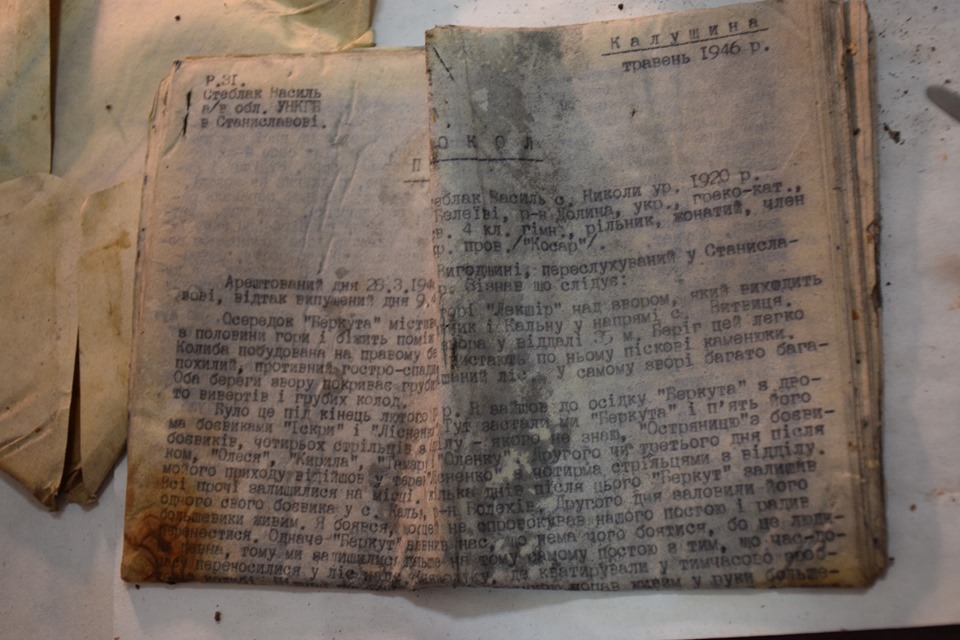 Калущина
травень 1946 р.
Р.31.
Стеблак Василь
а/в обл. УНКГБ
в Станиславові.
П ОКОЛ
еблак Василь с. Николи ур. 1920 р.
Белеїві, р-н Долина, укр., греко-кат.,
в. 4 кл. гімн., рільник, жонатий, член
р. пров. /"Косар"/.
Арештований дня 28.3.194 Вигодщині, переслухуваний у Станисла-
вові, відтак випущений дня 9.4 р. Зізнав що слідує:
Осередок "Беркута" містив горі "Лекшір" над звором, який виходить
з половини гори і біжить помі ник і Кальну у напрямі с. Витвиця.
Колиба побудована на правому бе вора у віддалі 35 м. Беріг цей легко
похилий, противний гостро-спади вистають по ньому піскові каменюки.
Оба береги звору покриває груби шений ліс у самому зворі багато бага-
то вивертів і грубих колод.
Було це під кінець лютого р. Я зайшов до осідку "Беркута" з дво-
ма боєвиками "Іскри" і "Лісненко Тут застали ми "Беркута" і п'ять його
боєвиків, чотирьох стрільців з ілу - якого не знаю, "Остряницю" з боєви-
ном, "Олеся", "Кирила", "Тамари "Оленку". Другого чи третього дня після
мойого приходу відійшов у терен існенко чотирма стрільцями з відділу.
Всі прочі залишилися на місці. кілька днів після цього "Беркут" залишив
одного свого боєвика у с. Каль, р-н Болехів. Другого дня заловили його
большевики живим. Я боявся, не спровокував нашого постою і радив
перенестися. Одначе "Беркут" нас, що нема чого боятися, бо це люди-
певна, тому ми залишилися на тому самому постою з тим, що час-до-
часу переносилися у ліс де квартирували у тимчасово зроб-
попав живим у руки больше-